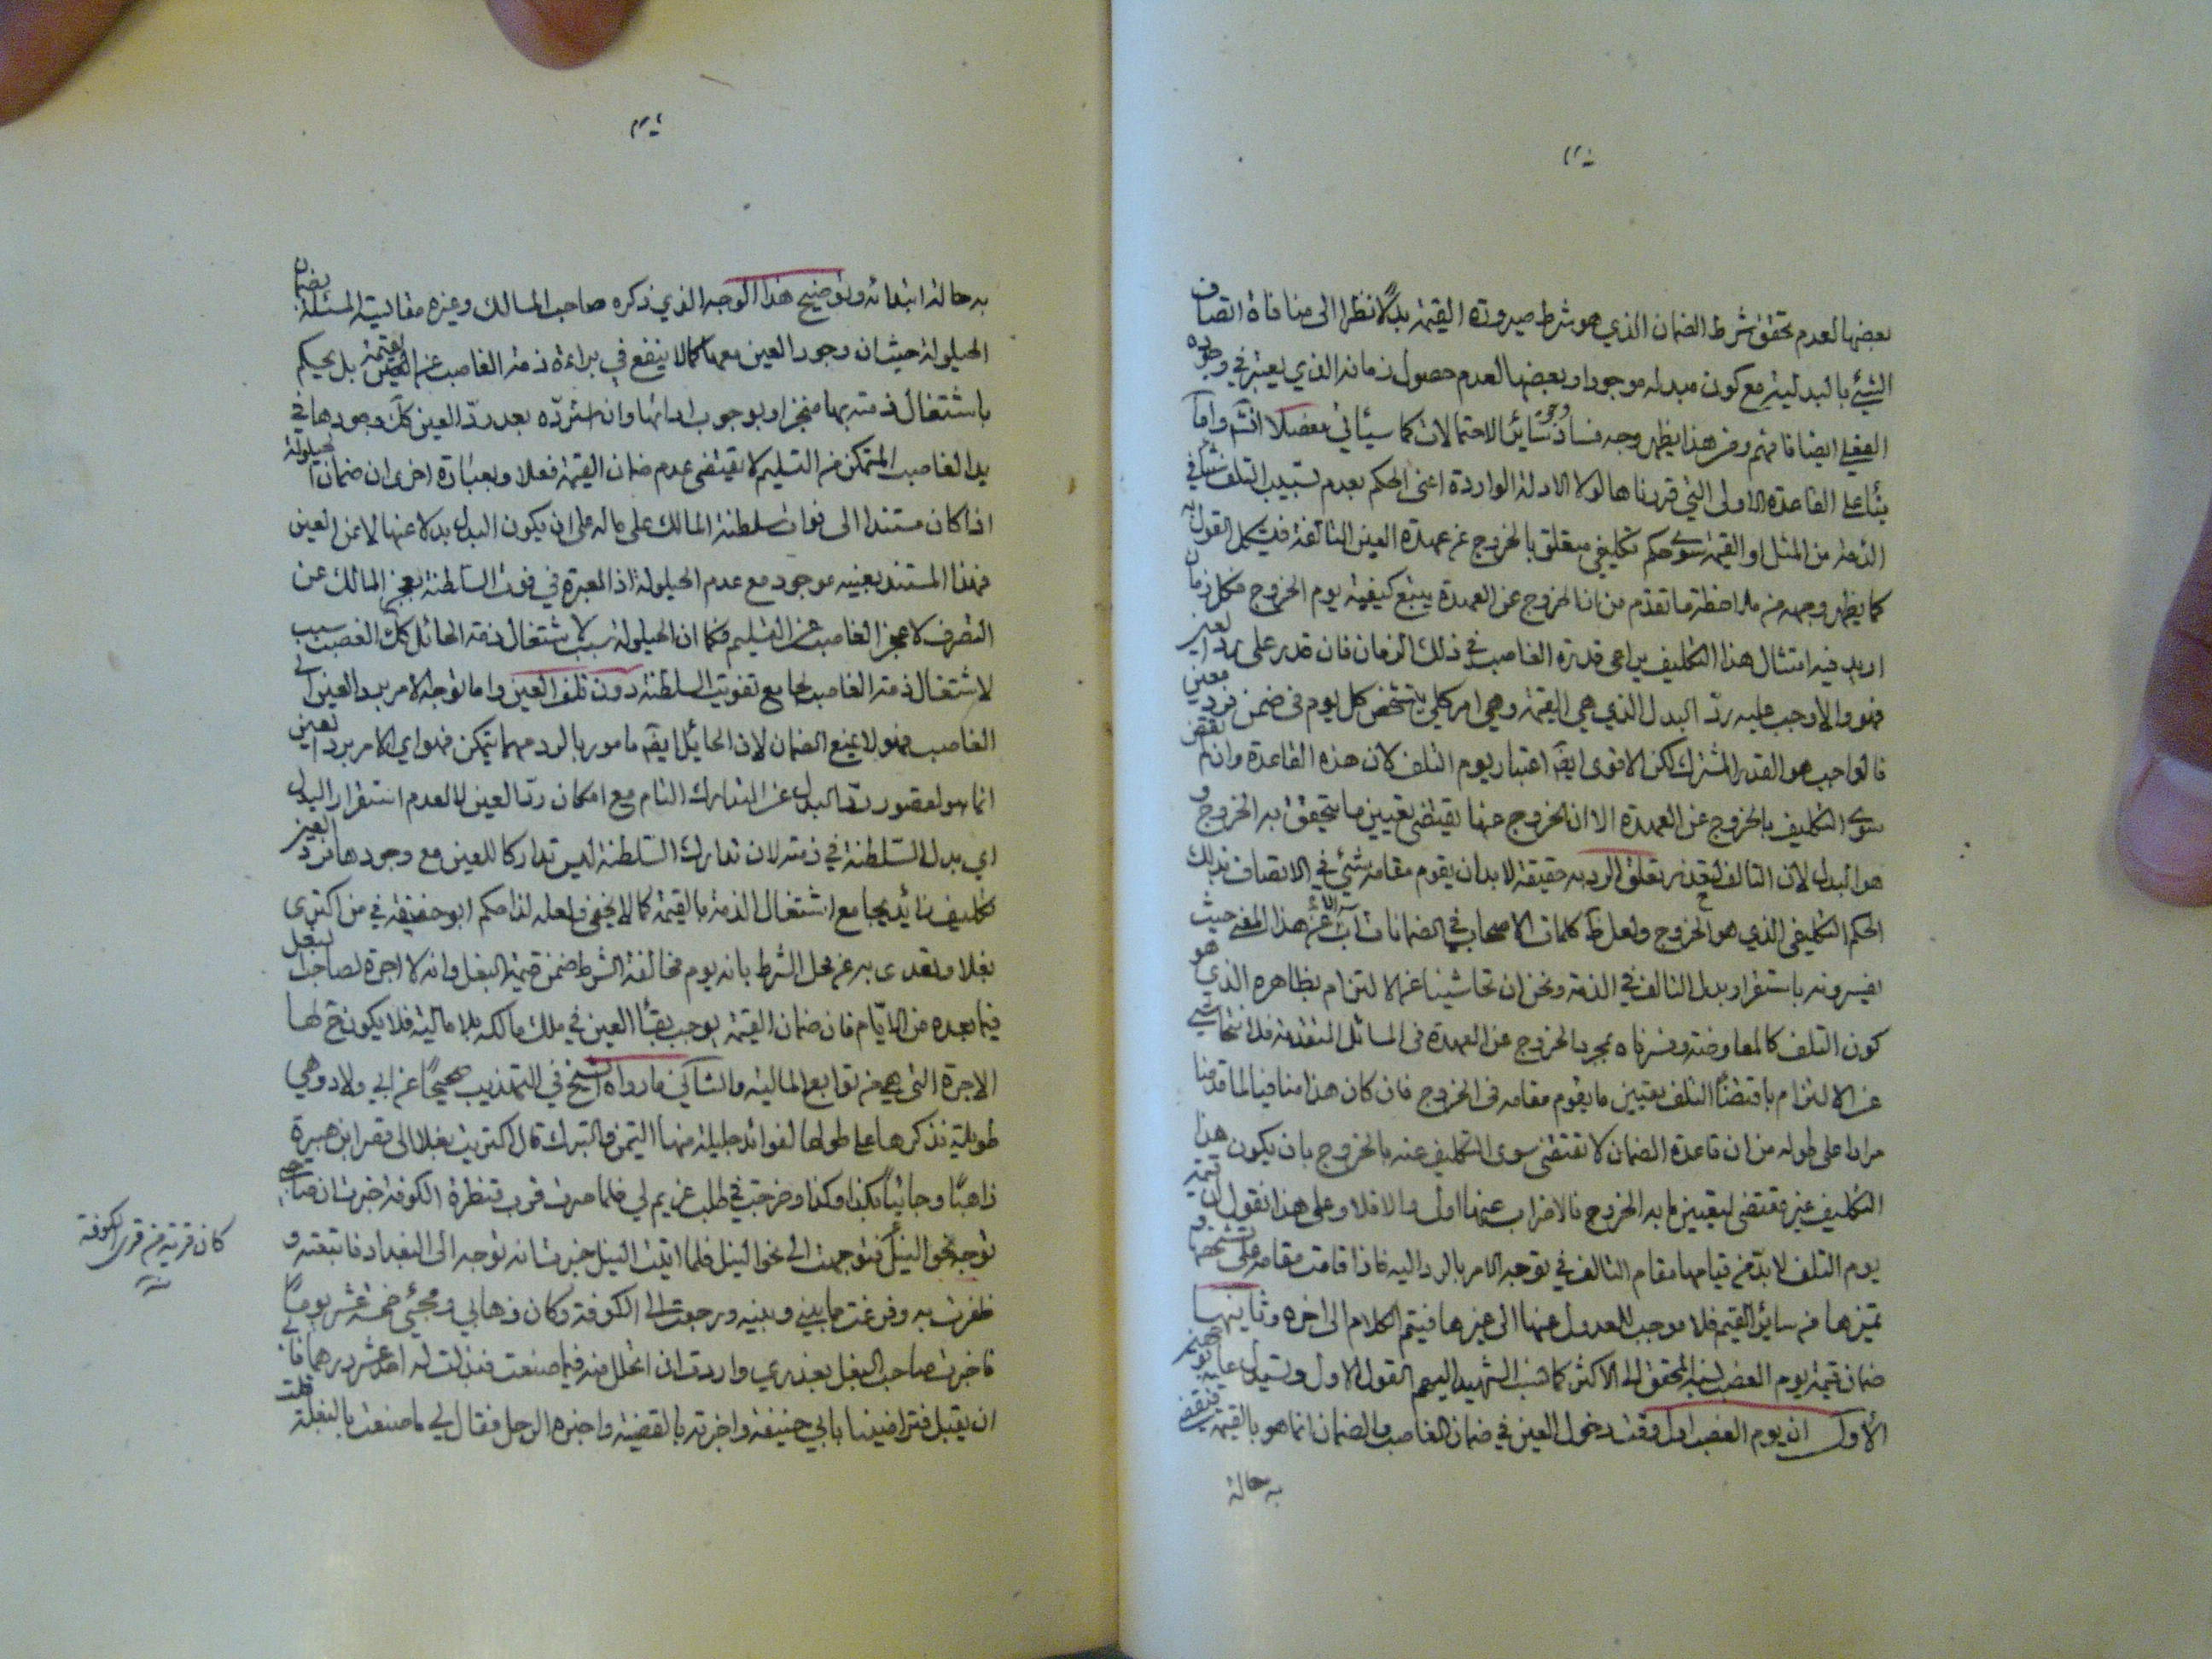 بعضها لعدم تحقق شرط الضمان الذي هو شرط صيرورة القيمة بدلا نظرا الى منافاة اتصاف
الشيء بالبدلية مع كون مبدله موجودا وبعضها لعدم حصول زمانه الذي يعتبر في وجوده
الفعلي ايضا فافهم ومن هذا يظهر وجه فساد وجوه سائر الاحتمالات كما سيأتي مفصلا انشاء واما
بناء على القاعدة الاولى التي قررناها لولا الادلة الواردة اعني الحكم بعدم تسبيب التلف شيئا في
الذمة من المثل او القيمة سوى حكم تكليفي متعلق بالخروج عن عهدة العين التالفة فيشكل القول به
كما يظهر وجهه من ملاحظة ما تقدم من ان الخروج عن العهدة يتبع كيفيته يوم الخروج فكل زمان
اريد فيه امتثال هذا التكليف يراعى قدرة الغاصب في ذلك الزمان فان قدر على رد العين
فهو والا وجب عليه رد البدل الذي هي القيمة وهي امر كلي يتشخص كل يوم في ضمن فرد معين
فالواجب هو القدر المشترك لكن الاقوى ايضا اعتبار يوم التلف لان هذه القاعدة وان لم تقتض
سوى التكليف بالخروج عن العهدة الا ان الخروج عنها يقتضي تعيين ما يتحقق به الخروج و
هو البدل لان التالف لتعذر تعلق الرد به حقيقة لابد ان يقوم مقامه شيء في الاتصاف بذلك
الحكم التكليفي الذي هو الخروج ولعل ظ كلمات الاصحاب في الضمانات آب عن هذا المعنى حيث
يفسرونه باستقرار بدل التالف في الذمة ونحن ان تحاشينا عن الالتزام بظاهره الذي هو
كون التلف كالمعاوضة وفسرناه بمجرد الخروج عن العهدة في المسائل المتقدمة فلا نتحاشى
عن الالتزام باقتضاء التلف تعيين ما يقوم مقامه في الخروج فان كان هذا منافيا لما قدمنا
مرارا على طوله من ان قاعدة الضمان لا تقتضي سوى التكليف عنه بالخروج بان يكون هذا
التكليف غير مقتضي لتعيين ما به الخروج فالاضراب عنها اولى والا فلا وعلى هذا نقول ان قيمة
يوم التلف لابد من قيامها مقام التالف في توجه الامر بالرد اليه فاذا قامت مقامه على تشخصها و
تميزها من سائر القيم فلا موجب للعدول عنها الى غيرها فيتم الكلام الى اخره وثانيها
ضمان قيمة يوم الغصب نسبه المحقق الى الاكثر كما نسب الشهيد اليهم القول الاول ويستدل عليه بوجهين
الاول ان يوم الغصب اول وقت دخول العين في ضمان الغاصب والضمان انما هو بالقيمة فيقضى
به حالة
به حالة ابتدائه وتوضيح هذا الوجه الذي ذكره صاحب المسالك وغيره مقايسة المسئلة بضمان
الحيلولة حيث ان وجود العين معها كما لا ينفع في براءة ذمة الغاصب عن القيمة بل يحكم
باشتغال ذمته بها منجزا وبوجوب ادائها وان استرده بعد رد العين كك وجودها في
يد الغاصب المتمكن من التسليم لا يقتضي عدم ضمان القيمة فعلا وبعبارة اخرى ان ضمان الحيلولة
اذا كان مستندا الى فوات سلطنة المالك على ماله على ان يكون البدل بدلا عنها لا عن العين
فهذا المستند بعينه موجود مع عدم الحيلولة اذ العبرة في فوت السلطنة بعجز المالك عن
التصرف لا عجز الغاصب عن التسليم فكما ان الحيلولة سبب لاشتغال ذمة الحائل كك الغصب سبب
لاشتغال ذمة الغاصب بجامع تفويت السلطنة دون تلف العين واما توجه الامر برد العين الى
الغاصب فهو لا يمنع الضمان لان الحائل ايضا مامور بالرد مهما يتمكن فهو اي الامر برد العين
انما هو لقصور رد البدل عن التدارك التام مع امكان رد العين لا لعدم استقرار البدل
اي بدل السلطنة في ذمته لان تدارك السلطنة ليس تداركا للعين مع وجودها فرد العين
تكليف زائد يجامع اشتغال الذمة بالقيمة كما لا يخفى ولعله لذا حكم ابو حنيفة في من اكترى
بغلا وتعدى به عن محل الشرط بانه يوم مخالفة الشرط ضمن قيمة البغل وانه لا اجرة لصاحب البغل
فيما بعده من الايام فان ضمان القيمة يوجب بقاء العين في ملك مالكه بلا مالية فلا يكون ح لها
الاجرة التي هي من توابع المالية والثاني ما رواه الشيخ في التهذيب صحيحا عن ابي ولاد وهي
طويلة نذكرها على طولها لفوائد جليلة منها التيمن والتبرك قال اكتريت بغلا الى قصر ابن هبيرة
ذاهبا وجائيا بكذا وكذا وخرجت في طلب غريم لي فلما صرت قرب قنطرة الكوفة خبرت ان صاحبي
توجه نحو النيل فتوجهت الى نحو النيل فلما اتيت النيل خبرت انه توجه الى البغداد فاتبعته و
ظفرت به وفرغت ما بيني وبينه ورجعت الى الكوفة وكان ذهابي ومجيئي خمسة عشر يوما
فاخبرت صاحب البغل بعذري واردت ان اتحلل منه فيما صنعت فبذلت له خمسة عشر درهما فابى
ان يقبل فتراضينا بابي حنيفة واخبرته بالقضية واخبره الرجل فقال لي ما صنعت بالبغل قلت
كان قرية من قرى الكوفة